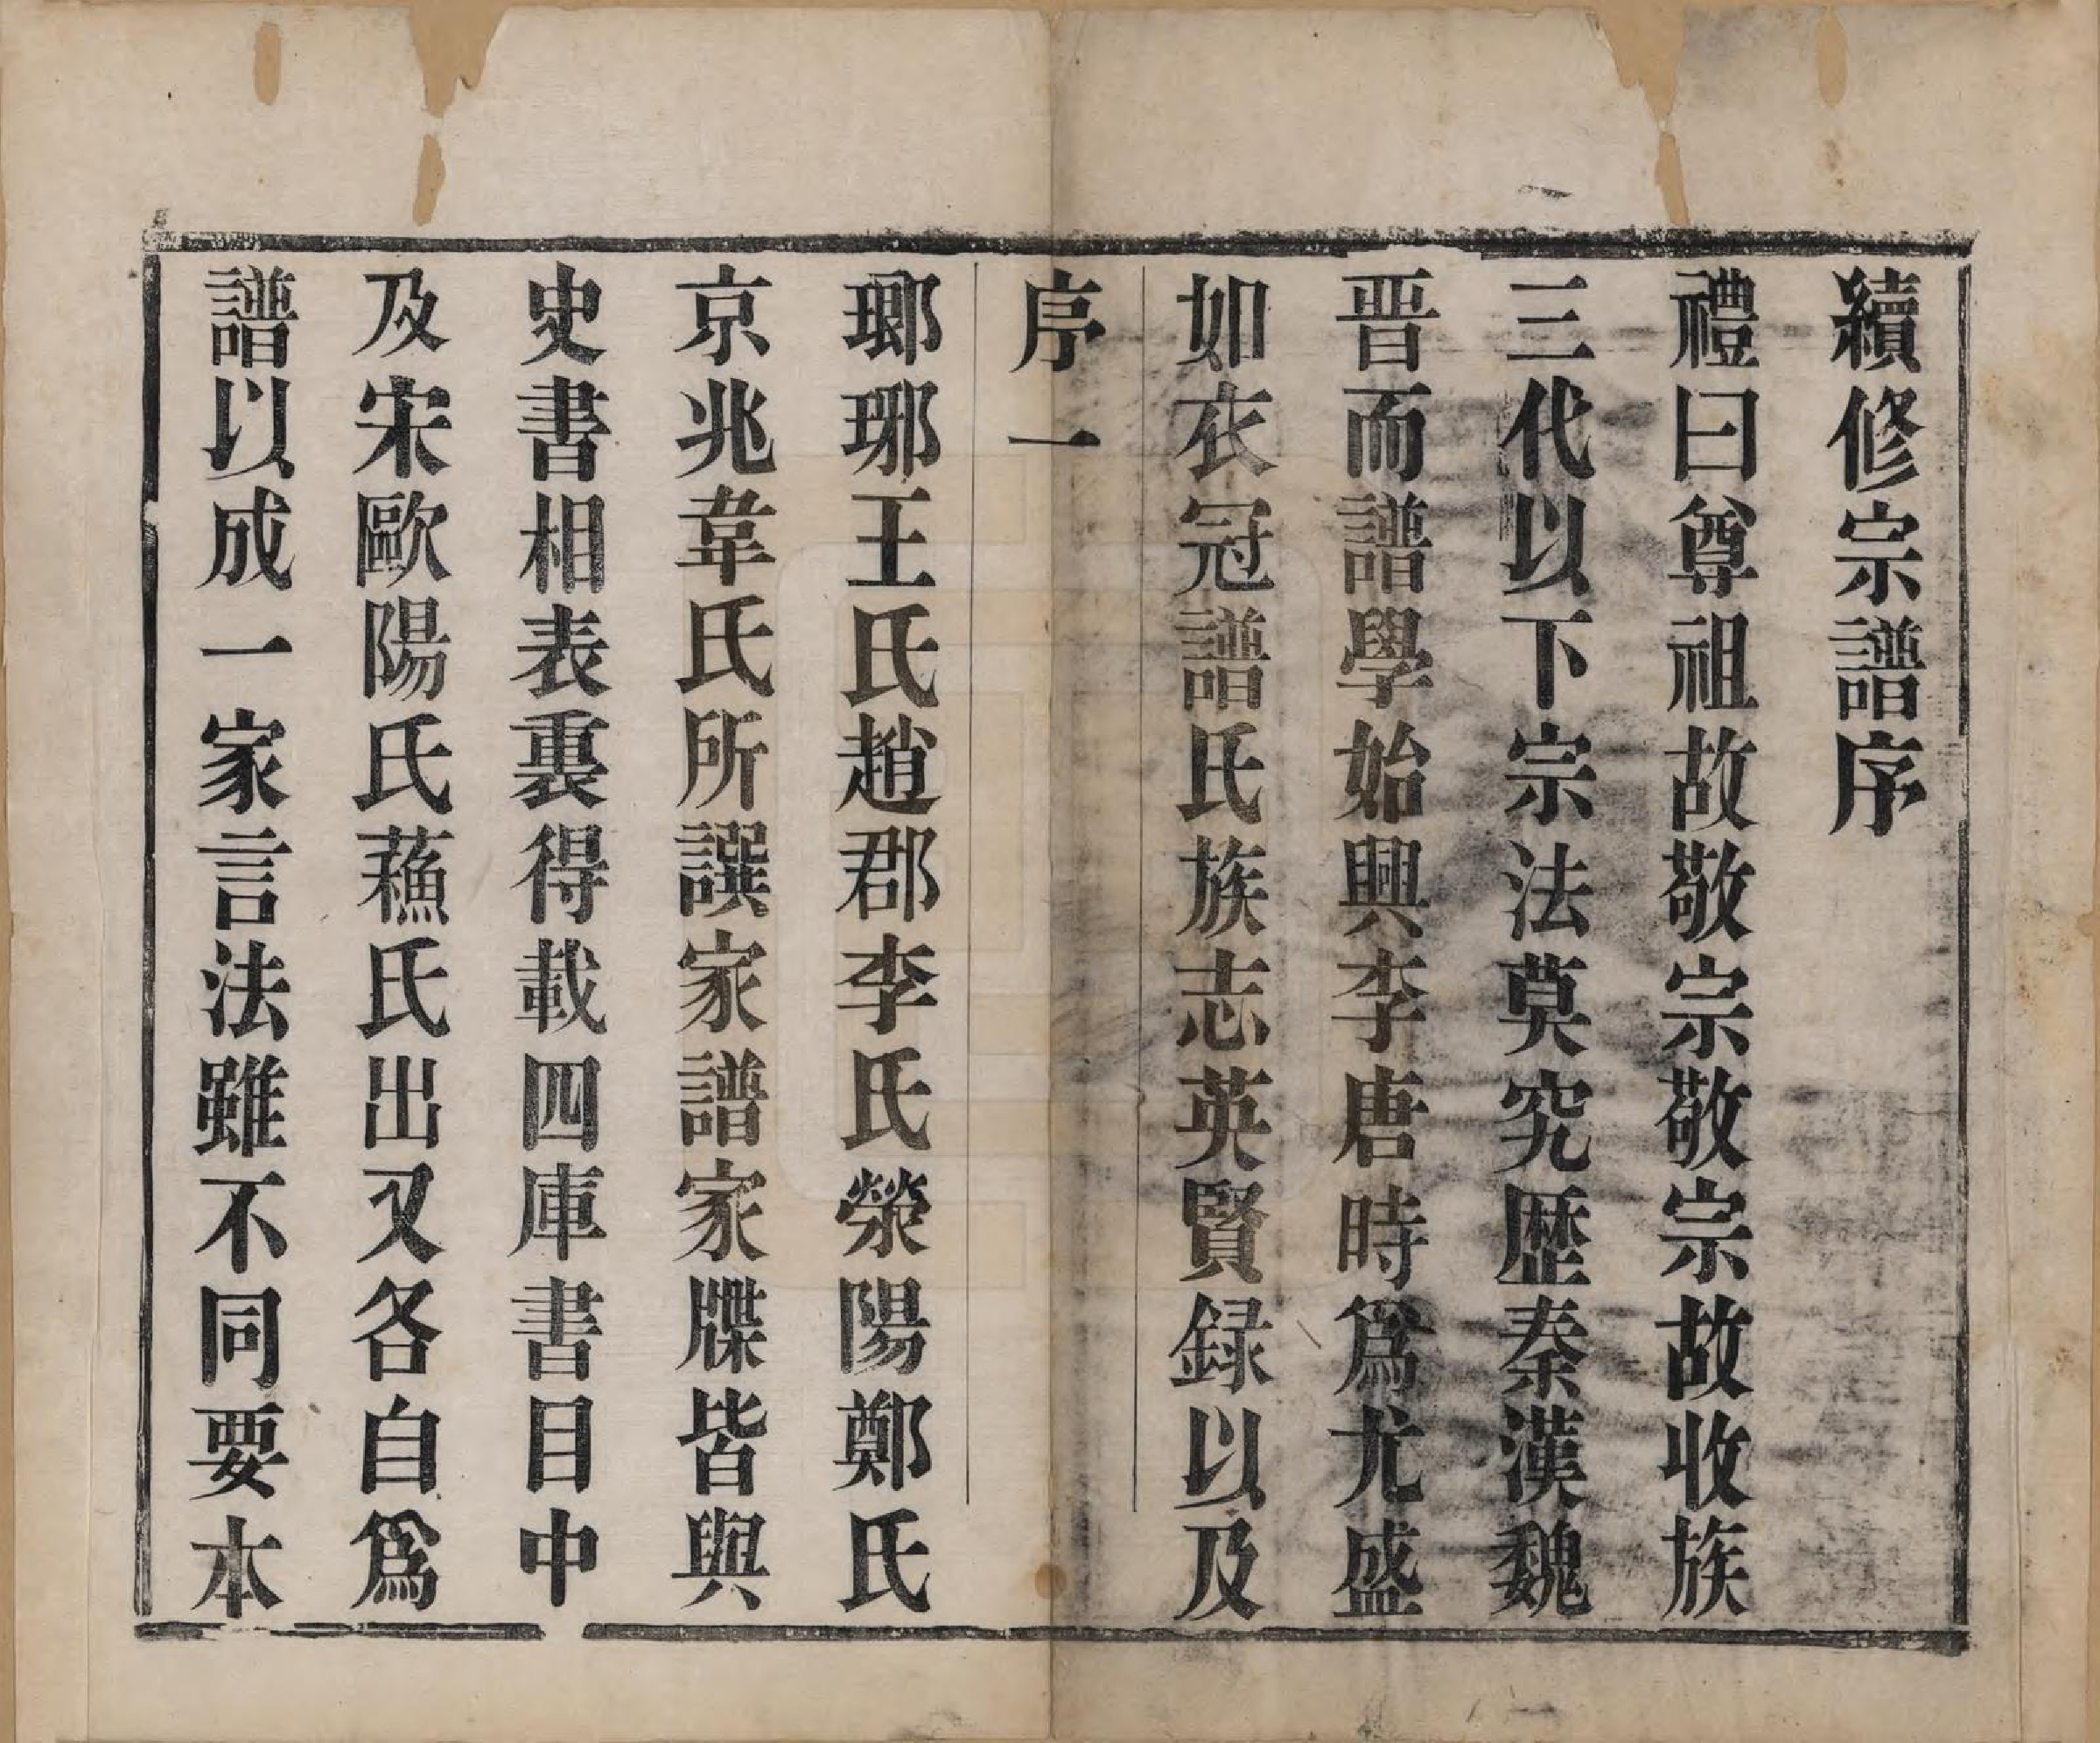 續修宗譜序
禮曰尊祖故敬宗敬宗故收族
三代以下宗法莫究歷秦漢魏
晋而譜學始興李唐時爲尤盛
如衣冠譜氏族志英賢録以及
序一
瑯琊王氏趙郡李氏滎陽鄭氏
京兆韋氏所譔家譜家牒皆與
史書相表裏得載四庫書目中
及宋歐陽氏蘓氏出又各自爲
譜以成一家言法雖不同要本